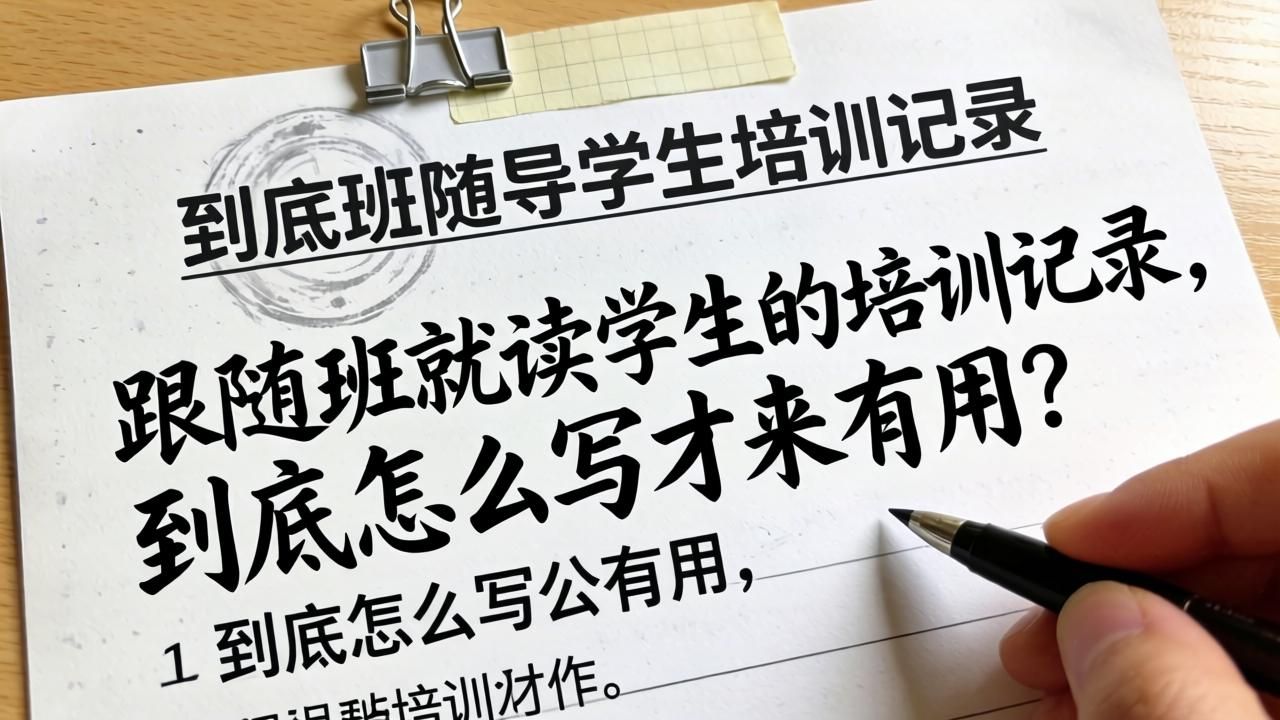 到底班随导学生培训记录
跟随班就读学生的培训记录，
到底怎么写才来有用？
1 到底怎么写公有用，
培训
作。